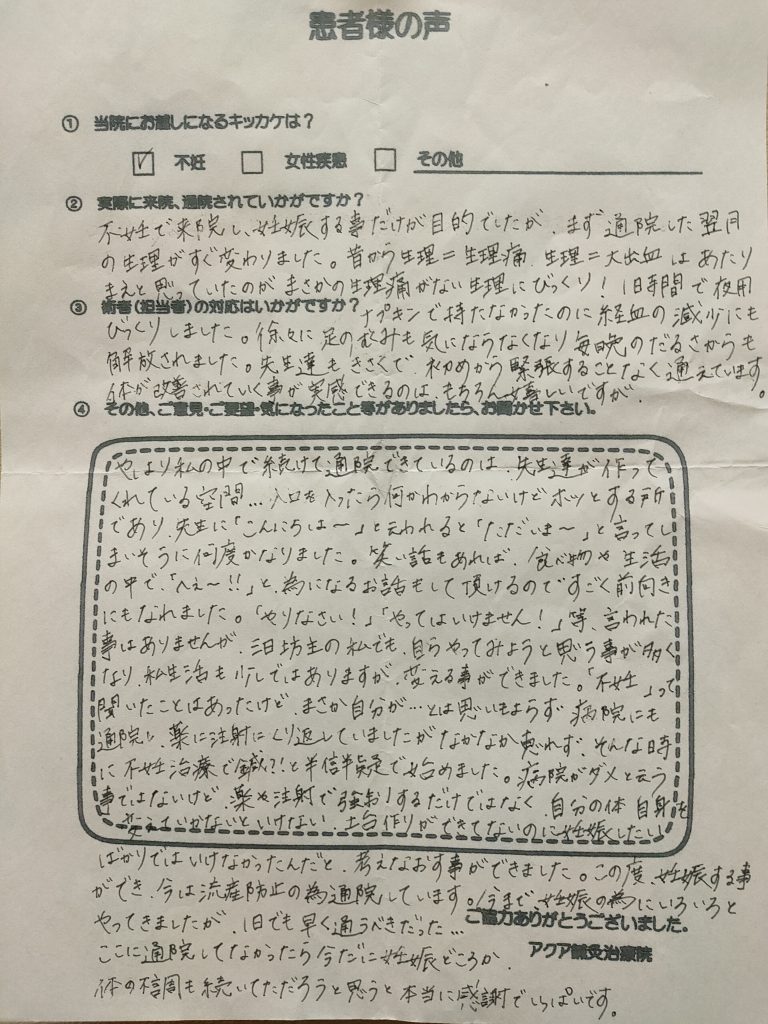 患者様の声
① 当院にお越しになるキッカケは？
☑ 不妊 □ 女性疾患 □ その他
② 実際に来院、通院されていかがですか？
不妊で来院し、妊娠する事だけが目的でしたが、まず通院した翌月
の生理がすぐ変わりました。昔から生理＝生理痛、生理＝大出血はあたり
まえと思っていたのがまさかの生理痛がない生理にびっくり！1日時間で夜用
③ 術者（担当者）の対応はいかがですか？
ナプキンで持たなかったのに経血の減少にも
びっくりしました。徐々に足の冷みも気にならなくなり毎晩のだるさからも
解放されました。先生達もきさくで初めから緊張することなく通えています。
体が改善されていく事が実感できるのは、もちろん嬉しいですが、
④ その他、ご意見・ご要望・気になったこと等がありましたら、お聞かせ下さい。
やはり私の中で続けて通院できているのは、先生達が作って
くれている空間…入口を入ったら何かわからないけどホッとする所
であり、先生に「こんにちは～」と云われると「ただいま～」と言ってし
まいそうに何度かなりました。笑い話もあれば、食べ物や生活
の中で、「へぇ～!!」と、為になるお話もして頂けるのですごく前向き
にもなれました。「やりなさい！」「やってはいけません！」等、言われた
事はありませんが、三日坊主の私でも、自らやってみようと思う事が多く
なり、私生活も少しではありますが、変える事ができました。「不妊」って
聞いたことはあったけど、まさか自分が…とは思いもよらず、病院にも
通院し、薬に注射にくり返していましたがなかなか恵れず、そんな時
に不妊治療で鍼?!と半信半疑で始めました。病院がダメと云う
事ではないけど、薬や注射で強おしするだけではなく、自分の体自身を
変えていかないといけない、土台作りができてないのに妊娠したい
ばかりではいけなかったんだと、考えなおす事ができました。この度、妊娠する事
ができ、今は流産防止の為通院しています。今まで、妊娠の為にいろいろと
やってきましたが、1日でも早く通うべきだった…
ご協力ありがとうございました。
ここに通院してなかったら今だに妊娠どころか、
アクア鍼灸治療院
体の不調も続いてただろうと思うと本当に感謝でいっぱいです。